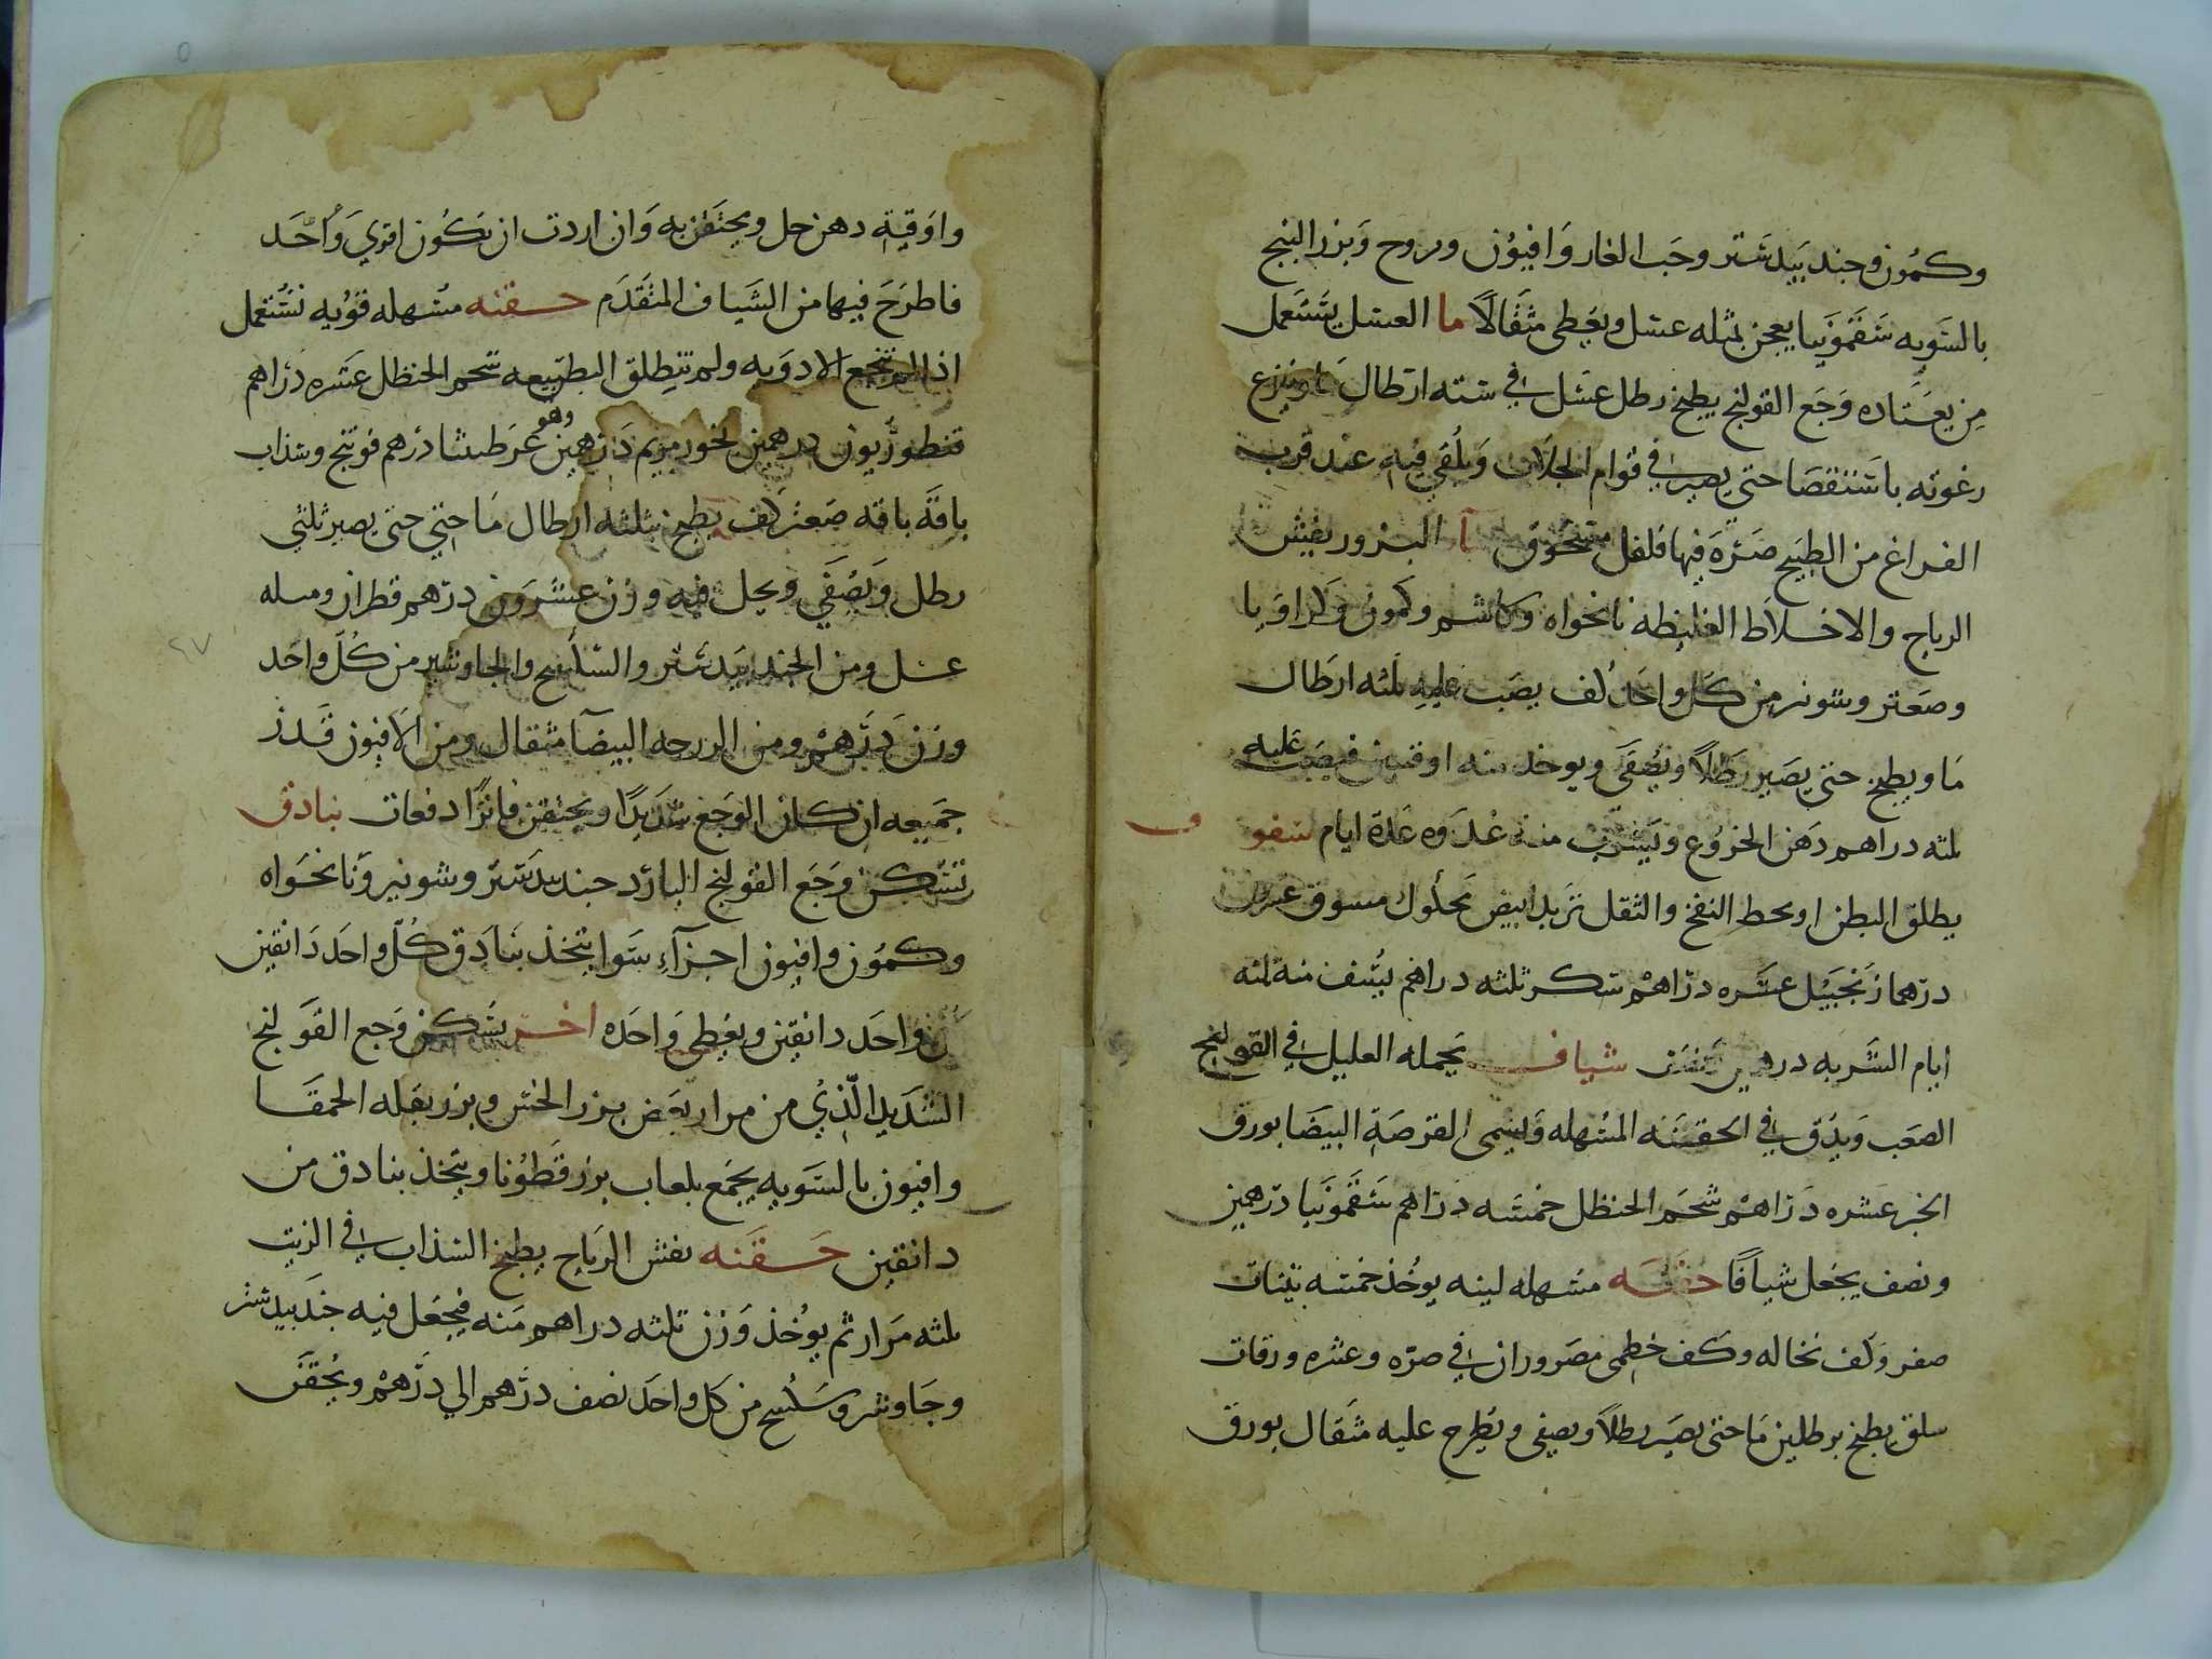 وكمون وجندبيدستر وحب الغار وافيون ويروح وبزر البنج
بالسويه سقمونيا يعجن بمثله عسل ويعطى مثقالاً ما العسل يستعمل
من يعتاده وجع القولنج يطبخ رطل عسل في سته ارطال ما وينزع
رغوته باستقصا حتى يصير في قوام الجلاب ويلقي فيه عند قرب
الفراغ من الطبيخ صره فيها فلفل مسحوق البزور يفيش
الرياح والاخلاط الغليظه نانخواه وكاشم وكمون وكراويا
وصعتر وشونيز من كل واحد كف يصب عليه ثلثه ارطال
ما ويطبخ حتى يصير رطلاً ويصفى ويوخذ منه اوقتين فيصب عليه
ثلثه دراهم دهن الخروع ويشرب منه غدوه عدة ايام سفوف
يطلق البطن ويحط النفخ والثقل تربد ابيض محلوك مسوق عشرين
درهما زنجبيل عشره دراهم سكر ثلثه دراهم يستف منه ثلثه
ايام الشربه درهمين شياف يحمله العليل في القولنج
الصعب ويذق في الحقنه المسهله ويسمى القرصة البيضا بورق
الخبز عشره دراهم شحم الحنظل خمسه دراهم سقمونيا درهمين
ونصف يجعل شيافا حقنه مسهله لينه يوخذ خمسه تينات
صفر وكف نخاله وكف خطمى مصروران في صره وعشره ورقات
سلق يطبخ برطلين ما حتى يصير رطلاً ويصفى ويطرح عليه مثقال بورق
واوقية دهن حل ويحتقن به وان اردت ان تكون اقوي واحد
فاطرح فيها من الشياف المتقدم حقنه مسهله قويه تستعمل
اذا لم تنجع الادويه ولم تنطلق الطبيعه شحم الحنظل عشره دراهم
قنطوريون درهمين بخور مريم درهمين وهو عرطنيثا درهم فوتنج وسذاب
باقة باقه صعتر كف يطبخ بثلثه ارطال ما حتي حتى يصير ثلثي
رطل ويصفي ويحل فيه وزن عشرون درهم قطران ومثله
عسل ومن الجندبيدستر والسكبينج والجاوشير من كل واحد
وزن درهم ومن الزرجه البيضا مثقال ومن الافيون قدر
جميعه ان كان الوجع شديدا ويحتقن فاترا دفعات بنادق
تسكن وجع القولنج البارد جندبيدستر وشونيز ونانخواه
وكمون وافيون اجزآء سوا يتخذ بنادق كل واحد دانقين
واحد دانقين ويعطى واحده اخر يسكن وجع القولنج
الشديد الذي من مرار يعض بزر الخس وبزر بقله الحمقا
وافيون بالسويه يجمع بلعاب بزر قطونا ويتخذ بنادق من
دانقين حقنه تفش الرياح يطبخ السذاب في الزيت
ثلثه مرار ثم يوخذ وزن ثلثه دراهم منه فيجعل فيه جندبيدستر
وجاوشير وسكبينج من كل واحد نصف درهم الي درهم ويحقن